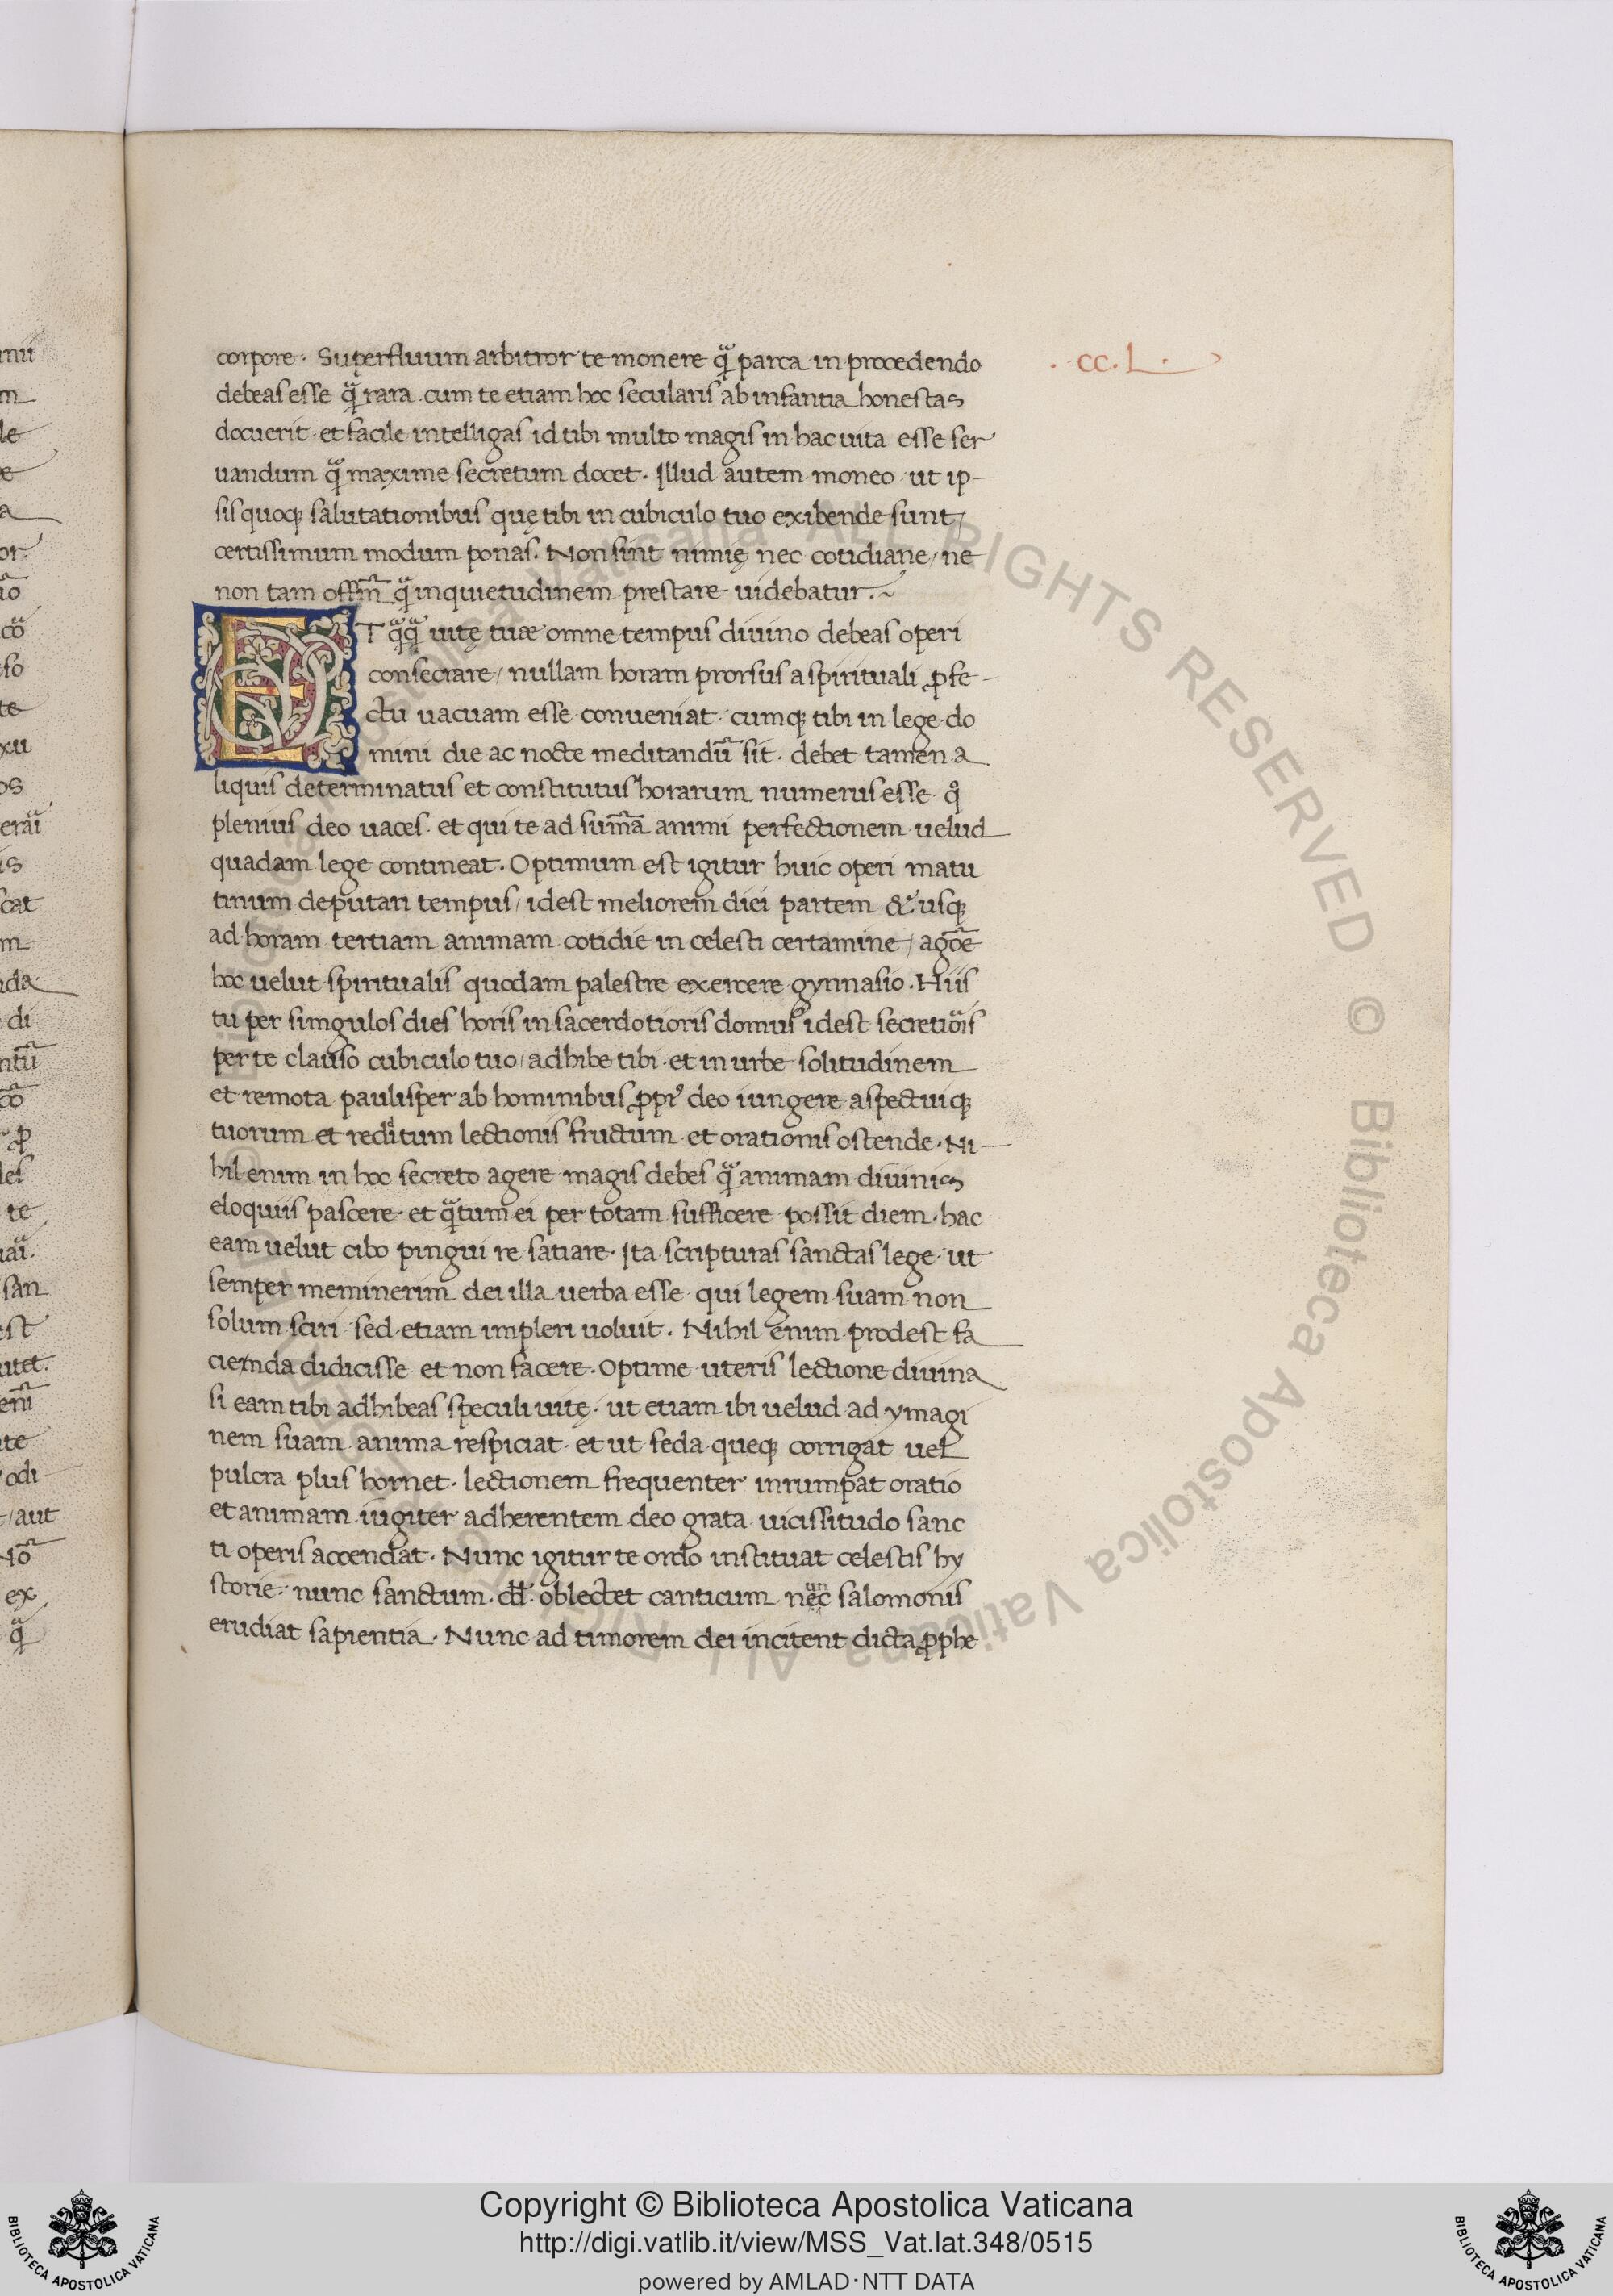 corpore. Superfluum arbitror te monere q̃ parca in procedendo
. cc.L.
debeas esse q̃ rara. cum te etiam hoc secularis ab infantia honestas
docuerit. et facile intelligas id tibi multo magis in hac uita esse ser
uandum q̃ maxime secretum docet. Illud autem moneo ut ip-
sis quoq; salutationibus quę tibi in cubiculo tuo exibende sunt/
certissimum modum ponas. Non sint nimię nec cotidiane/ ne
non tam offm̃ q̃ inquietudinem prestare uidebatur.~
ET q̃q̃ uitę tuæ omne tempus diuino debeas operi
consecrare/ nullam horam prorsus a spirituali ꝓfe-
ctu uacuam esse conueniat. cumq; tibi in lege do
mini die ac nocte meditandũ sit. debet tamen a
liquis determinatus et constitutus horarum numerus esse. qͦ
plenius deo uaces. et qui te ad sum̃ã animi perfectionem uelud
quadam lege contineat. Optimum est igitur huic operi matu
tinum deputari tempus/ idest meliorem diei partem & usq;
ad horam tertiam animam cotidie in celesti certamine/ agõẽ
hoc uelut spiritualis quodam palestre exercere gymnasio. Hiis
tu per simgulos dies horis in sacerdotioris domus idest secretiõis
per te clauso cubiculo tuo/ adhibe tibi et in urbe solitudinem
et remota paulisper ab hominibus ꝓpr̓ deo iungere aspectuiq;
tuorum et reditum lectionis fructum et orationis ostende. Ni-
hil enim in hoc secreto agere magis debes q̃ animam diuinis
eloquiis pascere et q̃tum ei per totam sufficere possit diem. hac
eam uelut cibo pingui re satiare. Ita scripturas sanctas lege ut
semper meminerim dei illa uerba esse qui legem suam non
solum sciri sed etiam impleri uoluit. Nihil enim prodest fa
cienda didicisse et non facere. Optime uteris lectione diuina
si eam tibi adhibeas speculi uitę. ut etiam ibi uelud ad ymagi
nem suam anima respiciat. et ut feda queq; corrigat uel
pulcra plus hornet. lectionem frequenter inrumpat oratio
et animam iugiter adherentem deo grata uicissitudo sanc
ti operis accendat. Nunc igitur te ordo instituat celestis hy
storie. nunc sanctum. dd̃. oblectet canticum nec salomonis
un
erudiat sapientia. Nunc ad timorem dei incitent dicta ꝓphe
ALL RIGHTS RESERVED © Biblioteca Apostolica Vaticana
Copyright © Biblioteca Apostolica Vaticana
http://digi.vatlib.it/view/MSS_Vat.lat.348/0515
powered by AMLAD·NTT DATA
BIBLIOTECA APOSTOLICA VATICANA
BIBLIOTECA APOSTOLICA VATICANA